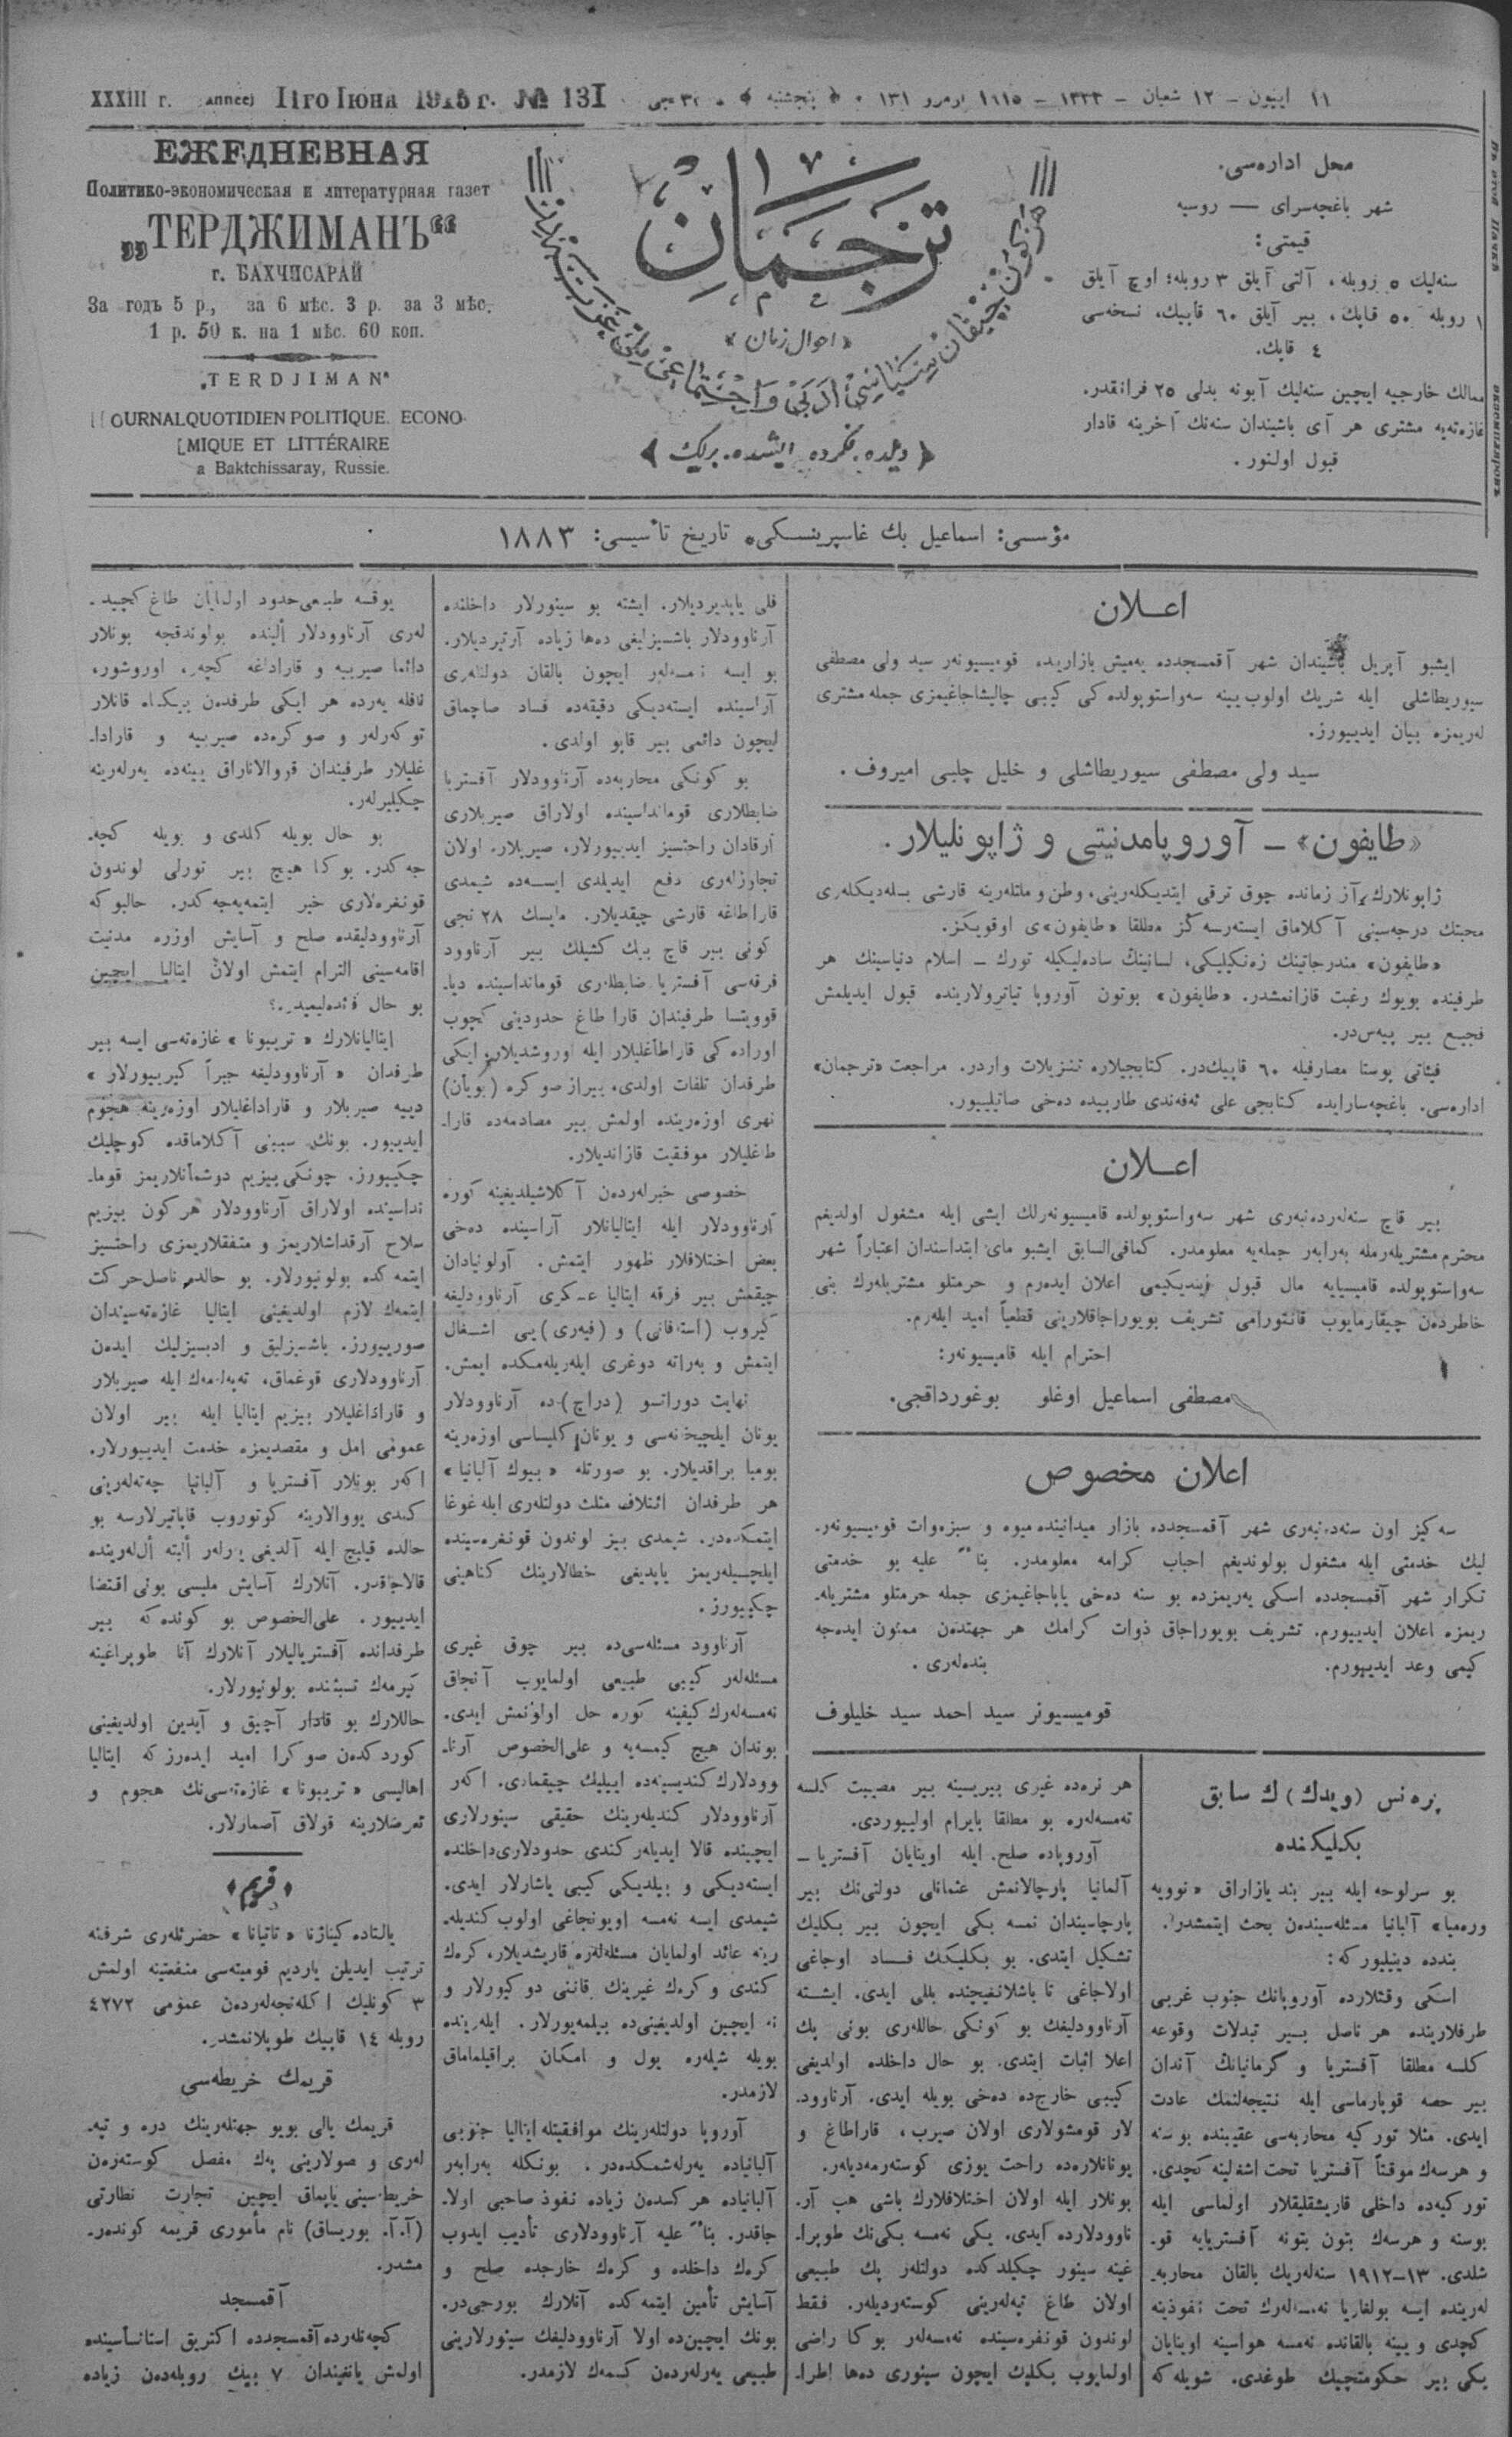 XXXIII г. (année) 11го Июня 1915 г. № 131
١١ اییون – ١٢ شعبان – ١٣٣٣ – ١٩١٥ نومرو ١٣١ • « پنجشنبه »
ЕЖЕДНЕВНАЯ
Политико-экономическая и литературная газет
„ТЕРДЖИМАНЪ“
г. БАХЧИСАРАЙ
За годъ 5 р., за 6 мѣс. 3 р. за 3 мѣс.
1 р. 50 к. на 1 мѣс. 60 коп.
„TERDJIMAN“
OURNAL QUOTIDIEN POLITIQUE. ECONO
MIQUE ET LITTÉRAIRE
a Baktchissaray, Russie.
ترجمان
« احوال زمان »
« دیلده، فكرده، ایشده، بریك »
محل اداره‌سی.
شهر باغچه‌سرای — روسیه
قیمتی:
سنه‌لیك ٥ روبله، آلتی آیلق ٣ روبله؛ اوچ آیلق
١ روبله ٥٠ قاپك، بیر آیلق ٦٠ قاپیك، نسخه‌سی
٤ قاپك.
ممالك خارجیه ایچین سنه‌لیك آبونه بدلی ٢٥ فرانقدر.
غازه‌ته‌یه مشتری هر آی باشیندان سنه‌نك آخرینه قادار
قبول اولنور.
مؤسسی: اسماعیل بك غاسپرینسكی، تاریخ تأسیسی: ١٨٨٣
اعـلان
ایشبو آپریل باشیندان شهر آقمسجدده یه‌میش بازارینده قومیسیونه‌ر سید ولی مصطفی
سیوریطاشلی ایله شریك اولوب یینه سه‌واستوپولده كی كیبی چالیشاجاغیمزی جمله مشتری
له‌ریمزه بیان ایدییورز.
سید ولی مصطفی سیوریطاشلی و خلیل چلبی امیروف.
«طایفون» – آوروپا مدنیتی و ژاپونلیلار.
ژاپونلارك آز زمانده چوق ترقی ایتدیكله‌رینی، وطن و ملتله‌رینه قارشی بـله‌دیكله‌ری
محبتك درجه‌سینی آكلاماق ایسته‌رسه‌كز مطلقا «طایفون»ی اوقویكز.
«طایفون» مندرجاتینك زه‌نكیلیكی، لسانینك ساده‌لیكیله تورك – اسلام دنیاسینك هر
طرفینده بویوك رغبت قازانمشدر. «طایفون» بوتون آوروپا تیاترولارینده قبول ایدیلمش
فجیع بیر پیه‌س‌در.
فیئاتی پوستا مصارفیله ٦٠ قاپیك‌در. كتابجیلاره تنزیلات واردر. مراجعت «ترجمان»
اداره‌سی. باغچه‌سارایده كتابجی علی ئه‌فه‌ندی طارپیده دخی صاتیلییور.
اعـلان
بیر قاچ سنه‌لرده‌نبه‌ری شهر سه‌واستوپولده قامیسیونه‌رلك ایشی ایله مشغول اولدیغم
محترم مشتریله‌رمله به‌رابه‌ر جمله‌یه معلومدر. كمافی‌السابق ایشبو مای ابتداسندان اعتباراً شهر
سه‌واستوپولده قامیسیایه مال قبول ایتدیكیمی اعلان ایده‌رم و حرمتلو مشتریله‌رك بنی
خاطردن چیقارمایوب قانتورامی تشریف بویوراجاقلارینی قطعیاً امید ایله‌رم.
احترام ایله قامیسیونه‌ر:
مصطفی اسماعیل اوغلو بوغورداقجی.
اعلان مخصوص
سه‌كیز اون سنه‌دنبه‌ری شهر آقمسجدده بازار میدانینده میوه و سبزه‌وات قومیسیونه‌ر-
لیك خدمتی ایله مشغول بولوندیغم احباب كرامه معلومدر. بناءً علیه بو خدمتی
تكرار شهر آقمسجدده اسكی یه‌ریمزده بو سنه دخی یاپاجاغیمزی جمله حرمتلو مشتریله-
ریمزه اعلان ایدییورم. تشریف بویوراجاق ذوات كرامك هر جهتدن ممنون ایده‌جه
كیمی وعد ایدییورم. بنده‌له‌ری.
قومیسیونر سید احمد سید خلیلوف
پره‌نس (ویدك) ك سابق
بكلیكنده
بو سرلوحه ایله بیر بند یازاراق «نوویه
وره‌میا» آلبانیا مسئله‌سیندن بحث ایتمشدر.
بندده دینیلیور كه:
اسكی وقتلارده آوروپانك جنوب غربی
طرفلارینده هر ناصل بـیر تبدلات وقوعه
كلسه مطلقا آفستریا و گرمانیانك آندان
بیر حصه قوپارماسی ایله نتیجه‌لنمك عادت
ایدی. مثلا توركیه محاربه‌سی عقیبنده بوسنه
و هرسك موقتاً آفستریا تحت اشغالینه كچدی.
توركیه‌ده داخلی قاریشقلیقلار اولماسی ایله
بوسنه و هرسك بتون بتونه آفستریایه قو-
شلدی. ١٣–١٩١٢ سنه‌له‌ریك بالقان محاربه-
له‌رینده ایسه بولغاریا نه‌مسه‌لرك تحت نفوذینه
كچدی و یینه بالقانده نه‌مسه هواسینه اوینایان
یكی بیر حكومتچیك طوغدی. شویله كه
هر نره‌ده غیری بیریسینه بیر مصیبت كلسه
نه‌مسه‌لره بو مطلقا بایرام اولییوردی.
آوروپاده صلح. ایله اوینایان آفستریا –
آلمانیا پارچالانمش عثمانلی دولتی‌نك بیر
پارچاسیندان نمسه بكی ایچون بیر بكلیك
تشكیل ایتدی. بو بكلیكك فـساد اوجاغی
اولاجاغی تا باشلانغیچنده بللی ایدی. ایشته
آرناوودلیغك بو كونكی حاللەری بونی پك
اعلا اثبات ایتدی. بو حال داخلده اولدیغی
كیبی خارج‌ده دخی بویله ایدی. آرناوود-
لار قومشولاری اولان صیرب، قاراطاغ و
یونانلارده راحت یوزی كوسته‌رمه‌دیلر.
بونلار ایله اولان اختلافلارك باشی هپ آر-
ناوودلارده ایدی. یكی نه‌مسه بكی‌نك طوپرا-
غینه سینور چكیلدكده دولتلر پك طبیعی
اولان طاغ تپه‌له‌رینی كوسته‌ردیلر. فقط
لوندون قونفره‌سینده نه‌مسه‌لر بوكا راضی
اولمایوب بكلیك ایچون سینوری ده‌ها اطرا-
فلی یاپدیردیلار. ایشته بو سینورلار داخلنده
آرناوودلار باشسیزلیغی ده‌ها زیاده آرتیردیلار.
بو ایسه نمسه‌لر ایچون بالقان دولتله‌ری
آراسینده ایسته‌دیكی دقیقه‌ده فساد صاچماق
ایچون دائمی بیر قاپو اولدی.
بو كونكی محاربه‌ده آرناوودلار آفستریا
ضابطلاری قومانداسینده اولاراق صیربلاری
آرقادان راحتسیز ایدییورلار، صیربلار، اولان
تجاوزله‌ری دفع ایدیلدی ایسـه‌ده شیمدی
قاراطاغه قارشی چیقدیلار. مایسك ٢٨ نجی
كونی بیر قاچ بیك كشیلك بیر آرناوود
فرقه‌سی آفستریا ضابطلری قومانداسینده دیا-
قوویتسا طرفیندان قارا طاغ حدودینی كچوب
اوراده كی قاراطاغلیلار ایله اوروشدیلار، ایكی
طرفدان تلفات اولدی، بیراز صوكره (بویان)
نهری اوزه‌رینده اولمش بیر مصادمه‌ده قارا-
طاغلیلار موفقیت قازاندیلار.
خصوصی خبرله‌ردن آكلاشیلدیغینه كوره
آرناوودلار ایله ایتالیانلار آراسینده دخی
بعض اختلافلار ظهور ایتمش. آولونیادان
چیقمش بیر فرقه ایتالیا عسكری آرناوودلیغه
كیروب (استفانی) و (فیه‌ری)یی اشـغال
ایتمش و به‌راته دوغری ایله‌ریله‌مكده ایمش.
نهایت دوراتسو (دراچ)ده آرناوودلار
یونان ایلچیخانه‌سی و یونان كلیساسی اوزه‌رینه
بومبا براقدیلار. بو صورتله «بیوك آلبانیا»
هر طرفدان ائتلاف مثلث دولتله‌ری ایله غوغا
ایتمكده‌در. شیمدی بیز لوندون قونفره‌سینده
ایلچیله‌ریمز یاپدیغی خطالارینك كناهینی
چكییورز.
آرناوود مسئله‌سی‌ده بیر چوق غیری
مسئله‌لر كیبی طبیعی اولمایوب آنجاق
نه‌مسه‌له‌رك كیفینه كوره حل اولونمش ایدی.
بوندان هیچ كیمسه‌یه و علی‌الخصوص آرنا-
وودلارك كندیسینه‌ده اییلیك چیقمادی. اكر
آرناوودلار كندیله‌رینك حقیقی سینورلاری
ایچینده قالا ایدیلر كندی حدودلاری داخلنده
ایسته‌دیكی و بیلدیكی كیبی یاشارلار ایدی.
شیمدی ایسه نه‌مسه اویونجاغی اولوب كندیله-
رینه عائد اولمایان مسئله‌له‌ره قاریشدیلار، كرك
كندی و كرك غیرینك قانینی دوكیورلار و
نه ایچین اولدیغینی‌ده بیلمه‌یورلار. ایله‌ریده
بویله شیلره یول و امكان براقیلماماق
لازمدر.
آوروپا دولتله‌رینك موافقیتله ایتالیا جنوبی
آلبانیاده یه‌رله‌شمكده‌در. بونكله به‌رابه‌ر
آلبانیاده هر كسدن زیاده نفوذ صاحبی اولا-
جاقدر. بناءً علیه آرناوودلاری تأدیب ایدوب
كرك داخلده و كرك خارجده صلح و
آسایش تأمین ایتمه‌كده آنلارك بورجی‌در.
بونك ایچین‌ده اولا آرناوودلیغك سینورلارینی
طبیعی یه‌رله‌ردن كسمه‌ك لازمدر.
یوقسه طبیعی حدود اولمایان طاغ كچید-
له‌ری آرناوودلار ألینده بولوندقچه بونلار
دائما صیربیه و قاراداغه كچه‌ر، اوروشور،
نافله یه‌رده هر ایكی طرفدن بیكناه قانلار
توكه‌رلر و صوكره‌ده صیربیه و قارادا-
غلیلار طرفیندان قووالاناراق یینه‌ده یه‌رله‌رینه
چكیلیرلر.
بو حال بویله كلدی و بویله كچه-
جه‌كدر. بوكا هیچ بیر تورلی لوندون
قونفره‌لاری خیر ایتمه‌یه‌جه‌كدر. حالبوكه
آرناوودلیقده صلح و آسایش اوزره مدنیت
اقامه‌سینی التزام ایتمش اولان ایتالیا ایچین
بو حال فائده‌لیمیدر؟
ایتالیانلارك «تریبونا» غازه‌ته‌سی ایسه بیر
طرفدان «آرناوودلیغه جبراً كیرییورلار»
دییه صیربلار و قاراداغلیلار اوزه‌رینه هجوم
ایدییور. بونك سببنی آكلاماقده كوچلیك
چكییورز. چونكی بیزیم دوشمانلاریمز قوما-
نداسینده اولاراق آرناوودلار هر كون بیزیم
سلاح آرقداشلاریمز و متفقلاریمزی راحتسیز
ایتمه‌كده بولونیورلار. بو حالده ناصل حركت
ایتمه‌ك لازم اولدیغینی ایتالیا غازه‌ته‌سیندان
صورییورز. باشسیزلیق و ادبسیزلیك ایدن
آرناوودلاری قوغماق، ته‌په‌له‌مه‌ك ایله صیربلار
و قاراداغلیلار بیزیم ایتالیا ایله بیر اولان
عمومی امل و مقصدیمزه خدمت ایدییورلار.
اكر بونلار آفستریا و آلبانیا چه‌ته‌له‌رینی
كندی یووالارینه كوتوروب قاپاتیرلارسه بو
حالده قیلیچ ایله آلدیغی یرلر ألبته أل‌له‌رینده
قالاجاقدر. آنلارك آسایش ملیسی بونی اقتضا
ایدییور. علی‌الخصوص بو كونده كه بیر
طرفدانده آفستریالیلار آنلارك آنا طوپراغینه
كیرمه‌ك تشبثنده بولونیورلار.
حاللارك بو قادار آچیق و آیدین اولدیغینی
كوردكدن صوكرا امید ایده‌رز كه ایتالیا
اهالیسی «تریبونا» غازه‌ته‌سی‌نك هجوم و
تعرضلارینه قولاق آصمازلار.
«قریم»
یالتاده كیناژنا «تاتیانا» حضرتله‌ری شرفنه
ترتیب ایدیلن یاردیم قومیته‌سی منفعتینه اولمش
٣ كونلیك اكله‌نجه‌له‌ردن عمومی ٤٢٧٢
روبله ١٤ قاپیك طوپلانمشدر.
قریمك خریطه‌سی
قریمك یالی بویو جهتله‌رینك دره و تپه-
له‌ری و صولارینی پك مفصل كوسته‌رن
خریطه‌سینی یاپماق ایچین تجارت نظارتی
(آ. آ. بوریساق) نام مأموری قریمه كوندر-
مشدر.
آقمسجد
كچه‌نلرده آقمسجدده اكتریق استانساسینده
اولمش یانغیندان ٧ بیك روبله‌دن زیاده